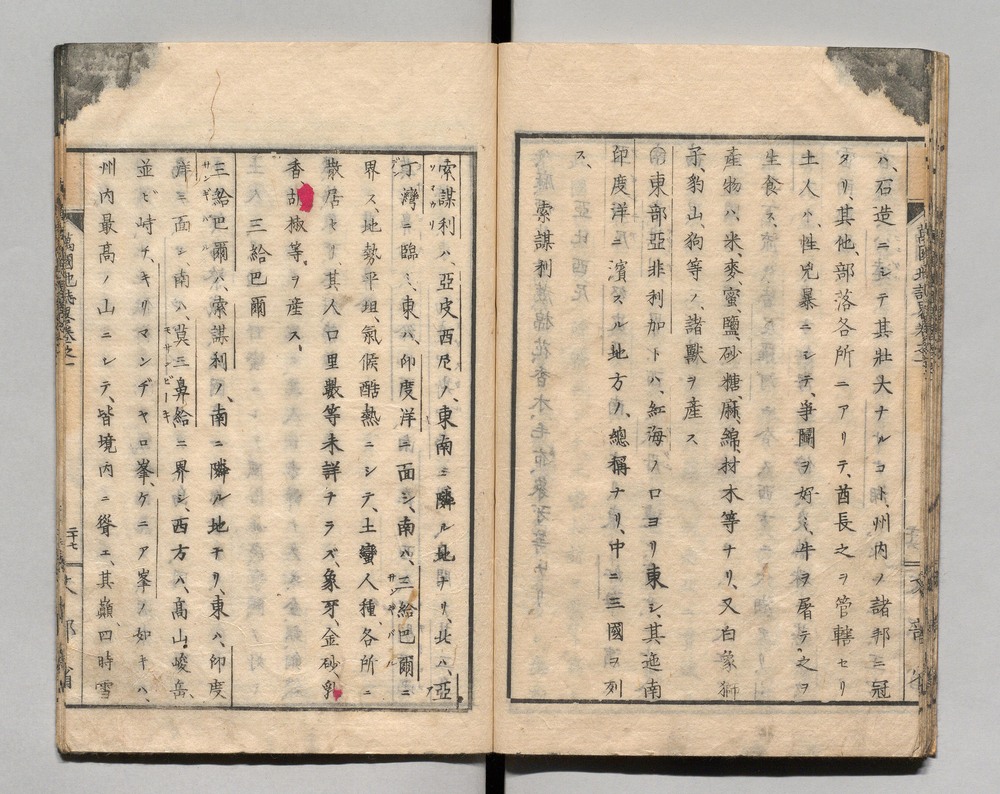 ハ、石造ニシテ其壯大ナルコト、州内ノ諸邦ニ冠
タリ、其他、部落各所ニアリテ、酋長之ヲ管轄セリ
土人ハ、性兇暴ニシテ、爭鬪ヲ好ミ、牛ヲ屠テ之ヲ
生食ス、
産物ハ、米、麥、蜜、鹽、砂糖、麻、綿、材木等ナリ、又白象、獅
子、豹、山狗等ノ、諸獸ヲ産ス
南東部亞非利加トハ、紅海ノ口ヨリ東シ、其迤南
印度洋ニ濱スル地方ノ總稱ナリ、中ニ三國ヲ列
ス、
索謀利
索謀利ハ、亞皮西尼ノ、東南ニ隣ル地ナリ、北ハ、亞
丁灣ニ臨ミ、東ハ、印度洋ニ面シ、南ハ、三給巴爾ニ
界ス、地勢平坦、氣候酷熱ニシテ、土蠻人種、各所ニ
散居セリ、其人口里數等未詳ナラズ、象牙、金砂、乳
香胡椒等ヲ産ス、
三給巴爾
三給巴爾ハ、索謀利ノ、南ニ隣ル地ナリ、東ハ、印度
洋ニ面シ、南ハ、莫三鼻給ニ界シ、西方ハ、高山峻岳、
並ビ峙チ、キリマンヂヤロ峯、ケニア峯ノ如キハ、
州内最高ノ山ニシテ、皆境内ニ聳エ、其巓四時雪
萬國地誌畧卷之一
二十七
文部省